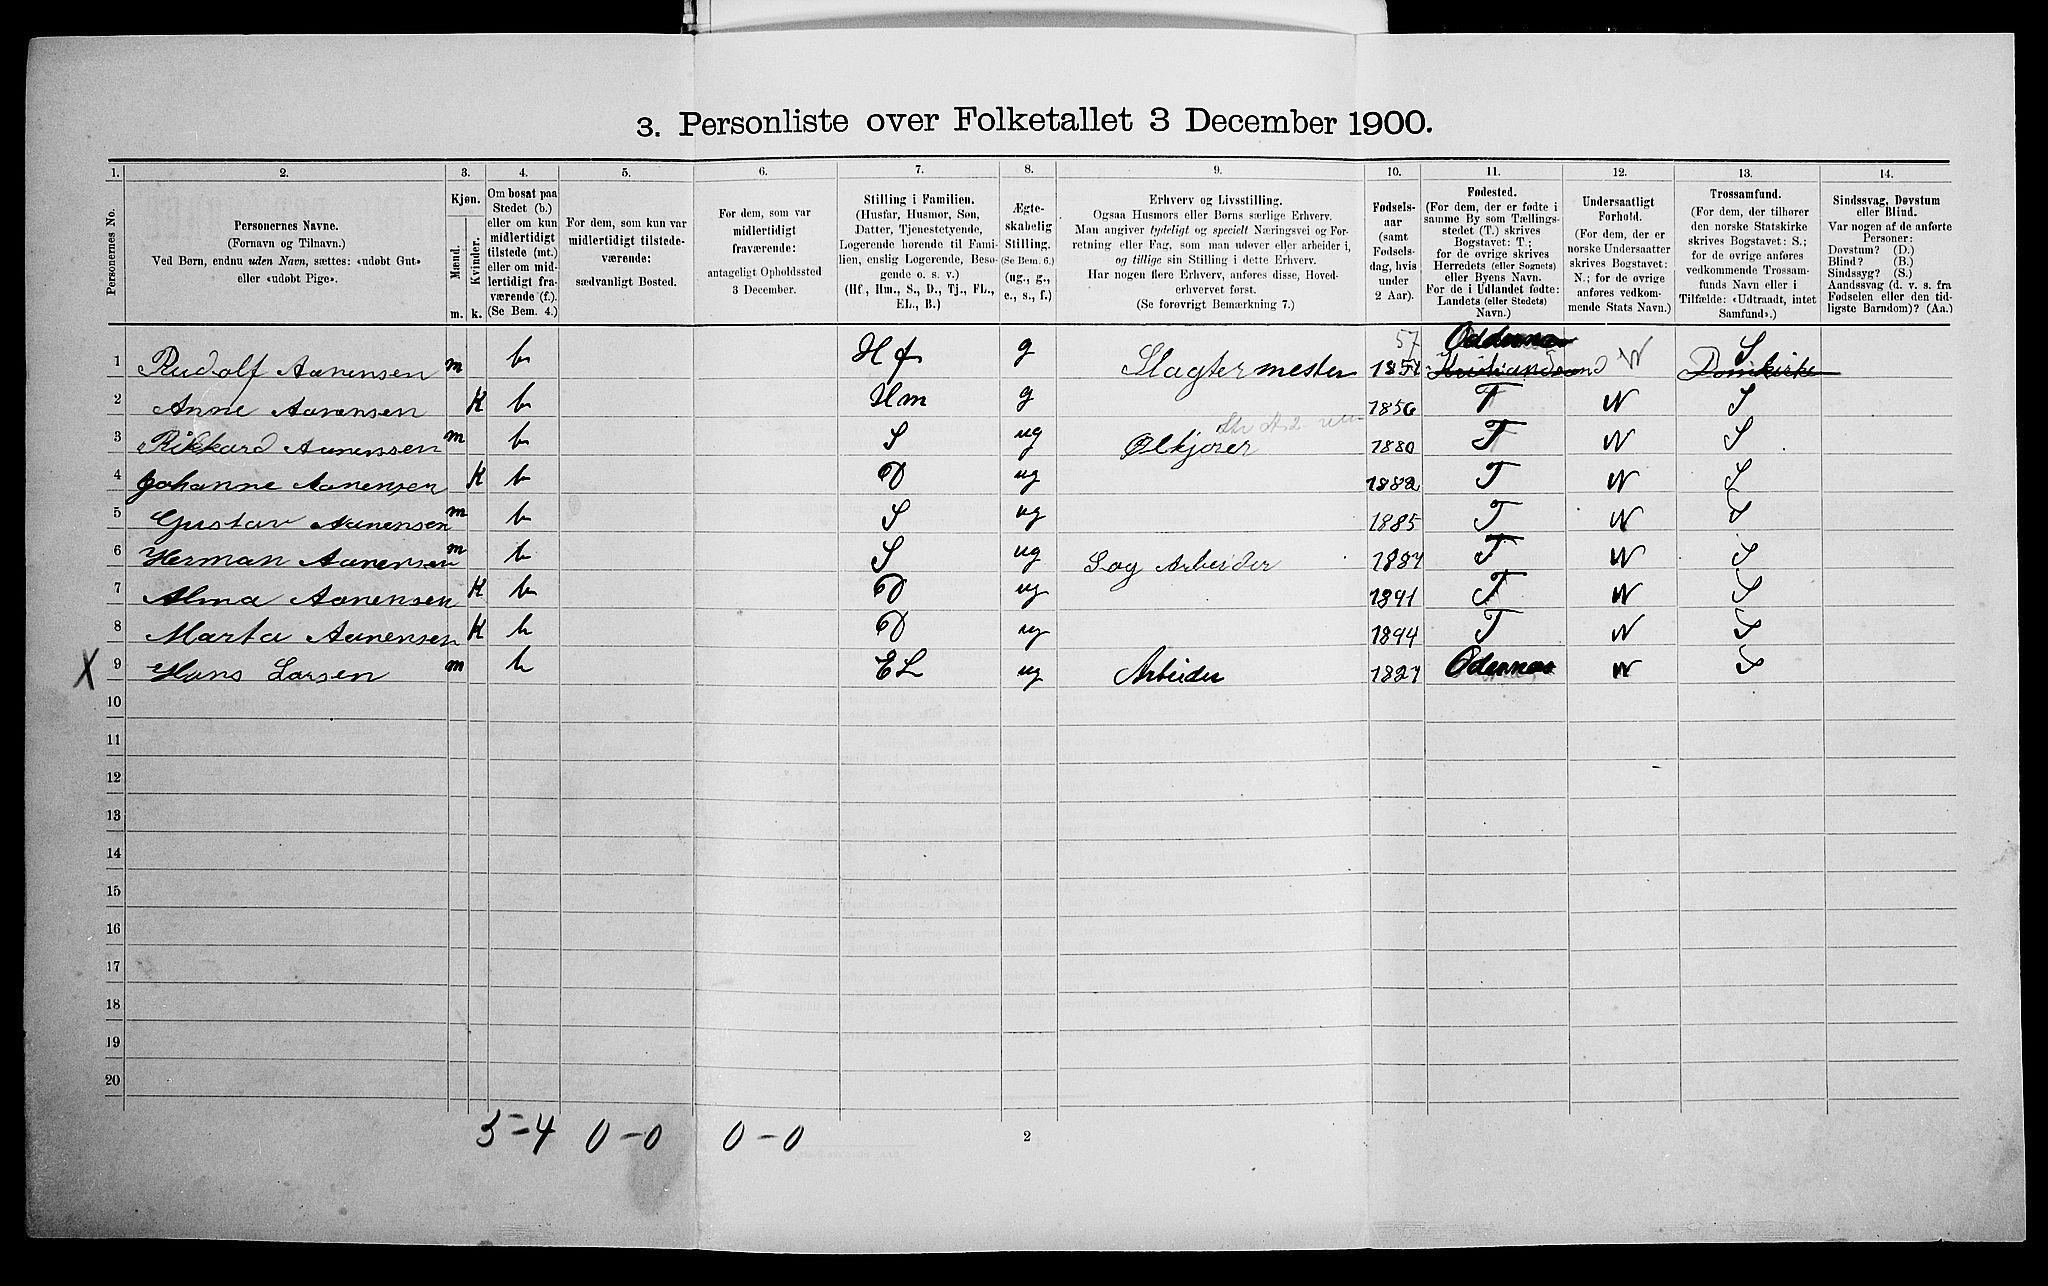 3. Personliste over Folketallet 3 December 1900.
1. 2. 3. 4. 5. 6. 7. 8. 9. 10. 11. 12. 13. 14.
Personernes No.
Personernes Navne.
(Fornavn og Tilnavn.)
Ved Børn, endnu uden Navn, sættes: «udøbt Gut»
eller «udøbt Pige».
Kjøn.
Mænd.
Kvinder.
m. k.
Om bosat paa
Stedet (b.)
eller om kun
midlertidigt
tilstede (mt.)
eller om mid-
lertidigt fra-
værende (f.)
(Se Bem. 4.)
For dem, som kun var
midlertidigt tilstede-
værende:
sædvanligt Bosted.
For dem, som var
midlertidigt
fraværende:
antageligt Opholdssted
3 December.
Stilling i Familien.
(Husfar, Husmor, Søn,
Datter, Tjenestetyende,
Logerende hørende til Fami-
lien, enslig Logerende, Besø-
gende o. s. v.)
(Hf., Hm., S., D., Tj., FL.,
EL., B.)
Ægte-
skabelig
Stilling.
(Se Bem. 6.)
(ug., g.,
e., s., f.)
Erhverv og Livsstilling.
Ogsaa Husmors eller Børns særlige Erhverv.
Man angiver tydeligt og specielt Næringsvei og For-
retning eller Fag, som man udøver eller arbeider i,
og tillige sin Stilling i dette Erhverv.
Har nogen flere Erhverv, anføres disse, Hoved-
erhvervet først.
(Se forøvrigt Bemærkning 7.)
Fødsels-
aar
(samt
Fødsels-
dag, hvis
under
2 Aar).
Fødested.
(For dem, der er fødte i
samme By som Tællings-
stedet (T.) skrives
Bogstavet: T;
for de øvrige skrives
Herredets (eller Sognets)
eller Byens Navn.
For de i Udlandet fødte:
Landets (eller Stedets)
Navn.)
Undersaatligt
Forhold.
(For dem, der er
norske Undersaatter
skrives Bogstavet:
N.; for de øvrige
anføres vedkom-
mende Stats Navn.)
Trossamfund.
(For dem, der tilhører
den norske Statskirke
skrives Bogstavet: S.;
for de øvrige anføres
vedkommende Trossam-
funds Navn eller i
Tilfælde: «Udtraadt, intet
Samfund».)
Sindssvag, Døvstum
eller Blind.
Var nogen af de anførte
Personer:
Døvstum? (D.)
Blind? (B.)
Sindssyg? (S.)
Aandssvag (d. v. s. fra
Fødselen eller den tid-
ligste Barndom)? (Aa.)
57 Oddernæs S
1 Rudolf Aanensen m b Hf g Slagtermester 1857 Kristiandsand N Domkirke
2 Anne Aanensen K b Hm g 1856 T N S
3 Rikkard Aanenssen m b S ug Ølkjører 1880 T N S
4 Johanne Aanensen K b D ug 1882 T N S
5 Gustav Aanensen m b S ug 1885 T N S
6 Herman Aanensen m b S ug Sag Arbeider 1887 T N S
7 Alma Aanensen K b D ug 1891 T N S
8 Marta Aanensen K b D ug 1894 T N S
X 9 Hans Larsen m b EL ug Arbeider 1827 Odernæs N S
10
11
12
13
14
15
16
17
18
19
20
5-4 0-0 0-0
2